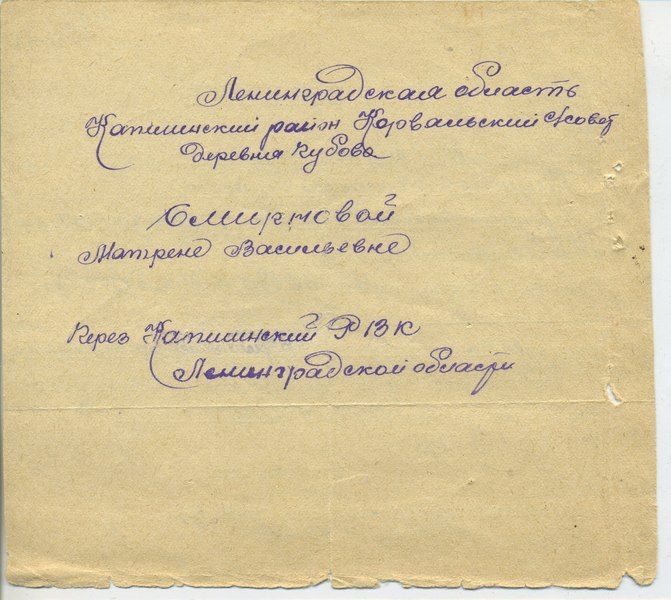 Ленинградская область
Капшинский район Корвальский с/совет
деревня Кубова
Смирновой
Матрене Васильевне
Через Капшинский РВК
Ленинградской области